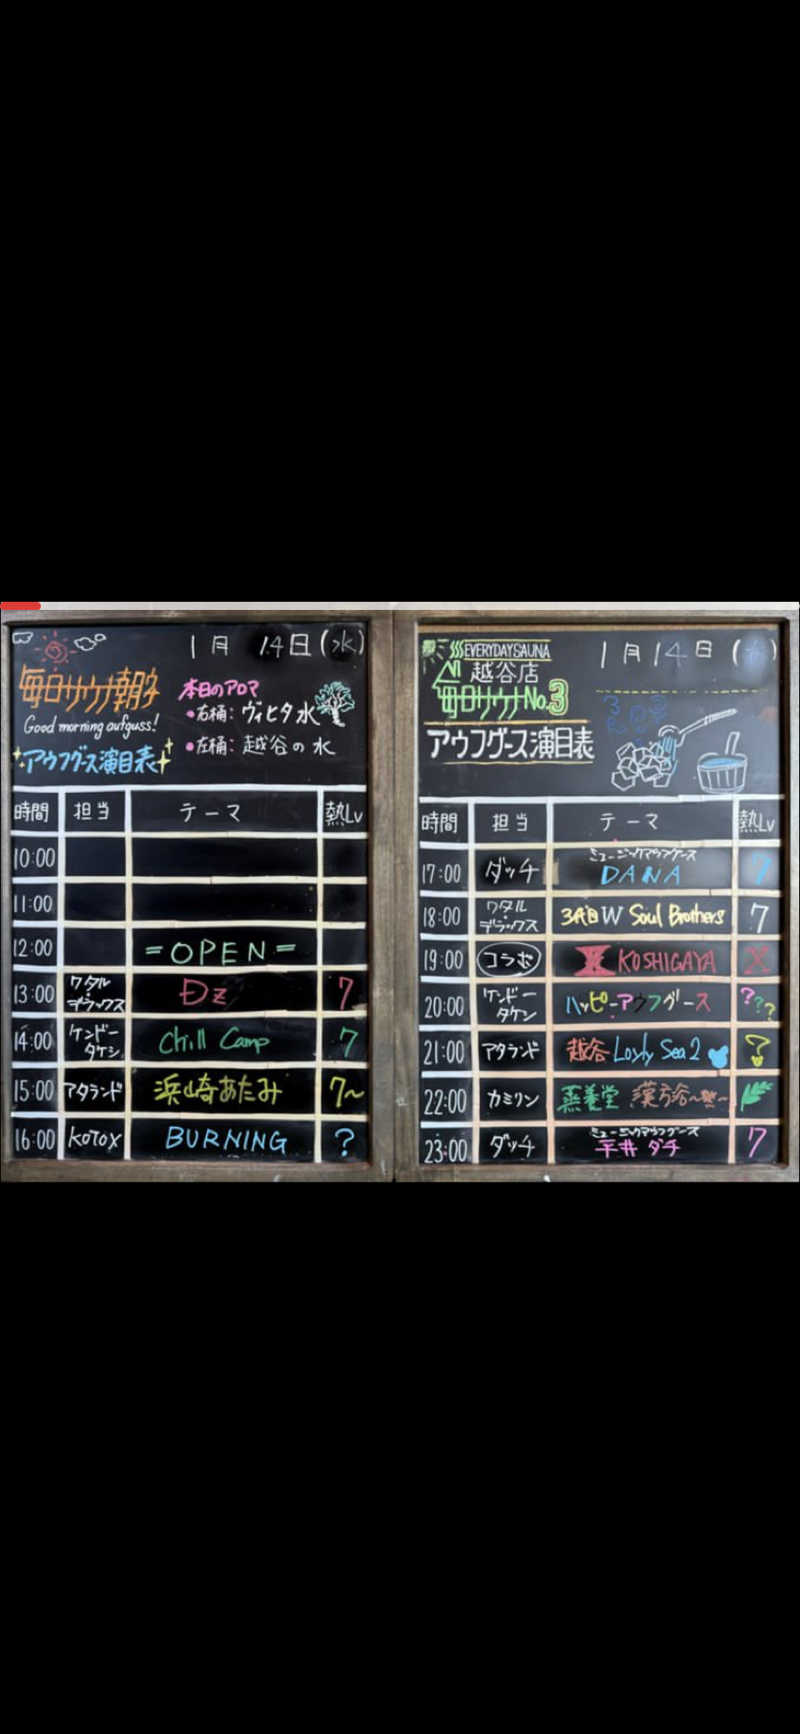 1月 14日(水)
毎日サウナ朝タ
Good morning aufguss!
アウフグース演目表
本日のアロマ
●右桶：ヴィヒタ水
●左桶：越谷の水
時間 担当 テーマ 熱Lv
10:00
11:00
12:00 =OPEN=
13:00 ワタル・デラックス Dz 7
14:00 ケンドータケシ Chill Camp 7
15:00 アタランド 浜崎あたみ 7~
16:00 KOTOX BURNING ?
EVERYDAY SAUNA
越谷店
毎日サウナNo.3
アウフグース演目表
1月14日(水)
時間 担当 テーマ 熱Lv
17:00 ダッチ ミュージックアウフグース DANA 7
18:00 ワタル・デラックス 3代目W Soul Brothers 7
19:00 コラボ X KOSHIGAYA X
20:00 ケンドータケシ ハッピーアウフグース ???
21:00 アタランド 越谷 Löyly Sea 2 ?
22:00 カミリン 蒸養堂 漢方浴~熱~
23:00 ダッチ ミュージックアウフグース 平井ダチ 7